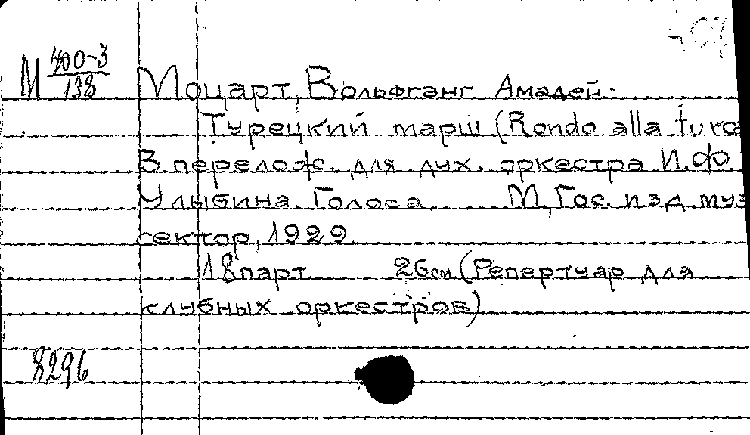 М 400-3
138
Моцарт, Вольфганг Амадей.
Турецкий марш (Rondo alla turca
В перелож. для дух. оркестра И.Ф
Улыбина. Голоса. М, Гос. изд. муз
сектор, 1929.
18 парт 26 см (Репертуар для
клубных оркестров)
8296